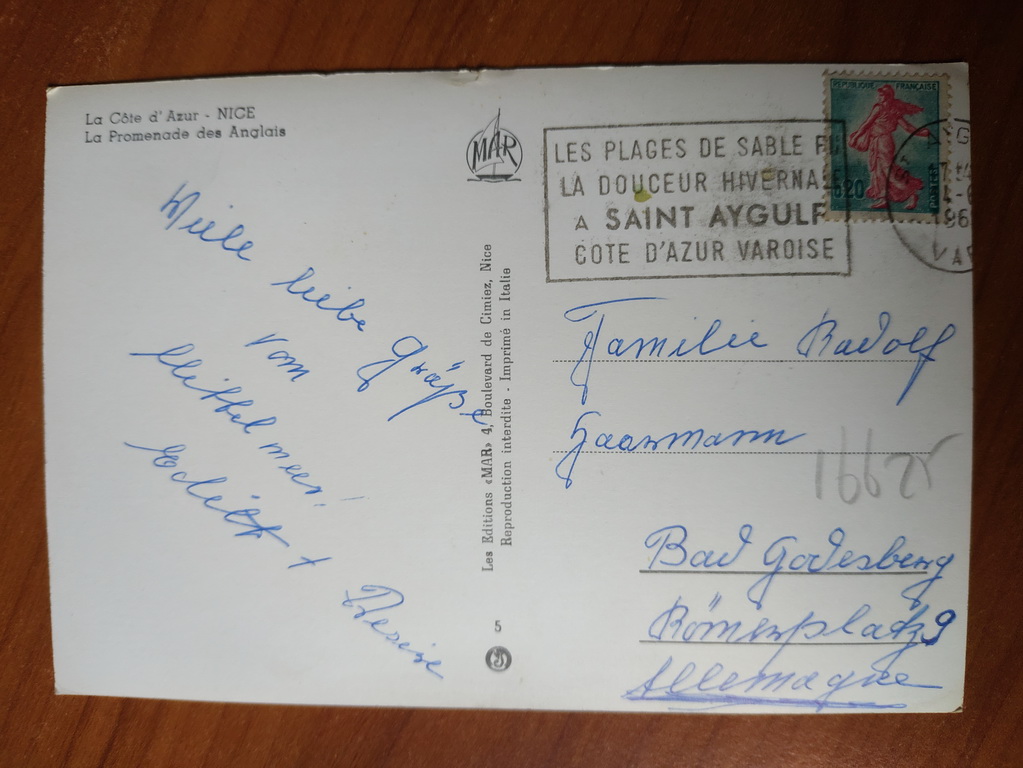 La Côte d'Azur - NICE
La Promenade des Anglais
MAR
LES PLAGES DE SABLE
LA DOUCEUR HIVERNALE
A SAINT AYGULF
COTE D'AZUR VAROISE
REPUBLIQUE FRANÇAISE
0,20
POSTES
VAR
Viele
liebe Grüße
vom
Mittelmeer!
Edith +
Denise
Les Editions «MAR» 4, Boulevard de Cimiez, Nice
Reproduction interdite - Imprimé in Italie
5
Familie Rudolf
Haarmann
Bad Godesberg
Römerplatz 9
Allemagne